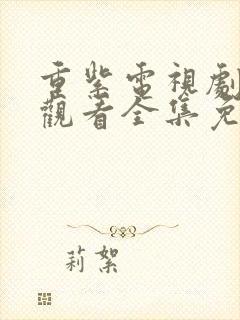 重紫電視劇
觀看全集免
莉絮